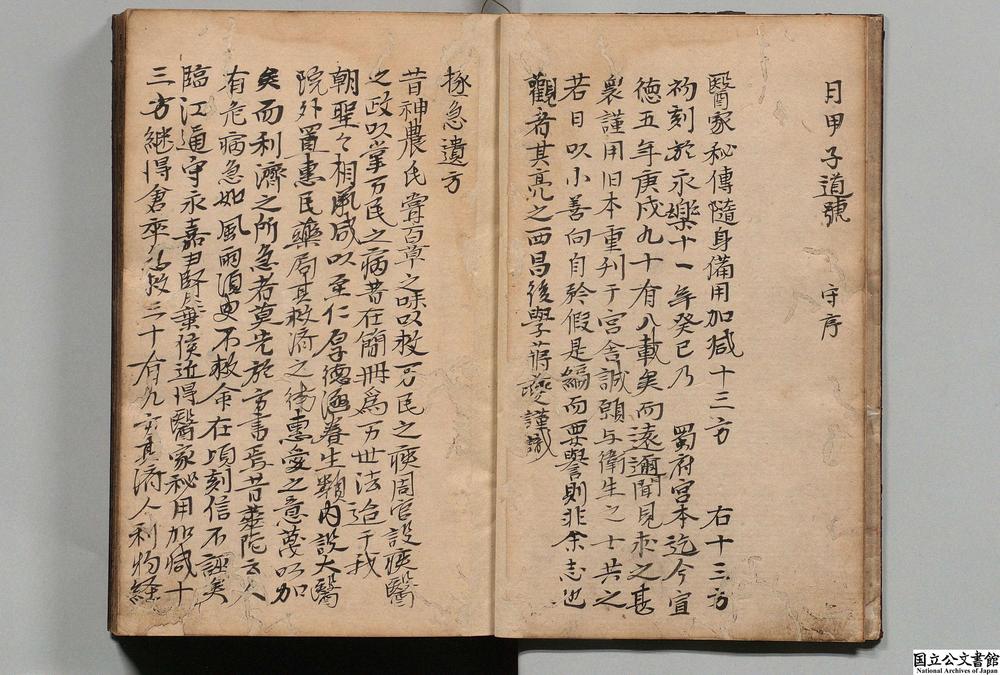 月甲子道號　守序
醫家秘傳隨身備用加减十三方　右十三方
初刻於永樂十一年癸巳乃　蜀府宮本迄今宣
德五年庚戌九十有八載矣而遠邇聞見求之甚
衆謹用旧本重刋于宮舎誠願与衛生之士共之
若日以小善向自矜假是編而要譽則非余志也
觀者其亮之西昌後學蔣夔謹識
捄急遺方
昔神農氏嘗百草之味以救万民之疾周官設疾醫
之政以掌万民之病昔在簡冊爲万世法迨于我
朝聖〻相承咸以至仁厚德涵養生類内設大醫
院外置惠民藥局其救濟之術惠愛之意蔑以加
矣而利濟之所急者莫先於方書焉昔華陀云人
有危病急如風雨須更不救命在頃刻信不誣矣
臨江通守永嘉尹賢侯近得醫家秘用加减十
三方継得倉卒救三十有九方其濟人利物経
国立公文書館
National Archives of Japan